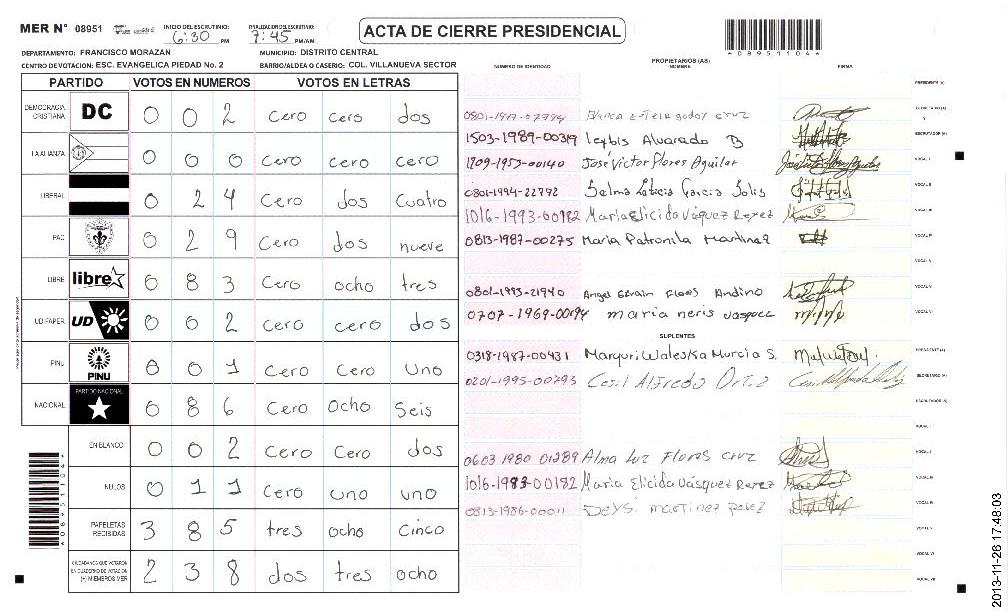 MER N° 08951 INICIO DEL ESCRUTINIO: 6:30 PM FINALIZACIÓN DEL ESCRUTINIO: 7:45 PM/AM
ACTA DE CIERRE PRESIDENCIAL
*08951104*
DEPARTAMENTO: FRANCISCO MORAZAN MUNICIPIO: DISTRITO CENTRAL
CENTRO DE VOTACION: ESC. EVANGELICA PIEDAD No. 2 BARRIO/ALDEA O CASERIO: COL. VILLANUEVA SECTOR
PROPIETARIOS (AS)
NUMERO DE IDENTIDAD NOMBRE FIRMA
PARTIDO VOTOS EN NUMEROS VOTOS EN LETRAS
DEMOCRACIA CRISTIANA DC 0 0 2 cero cero dos
LA ALIANZA 0 0 0 cero cero cero
LIBERAL 0 2 4 cero dos cuatro
PAC 0 2 9 cero dos nueve
LIBRE libre 0 8 3 cero ocho tres
UD/FAPER UD 0 0 2 cero cero dos
PINU PINU 0 0 1 Cero Cero Uno
NACIONAL PARTIDO NACIONAL 0 8 6 Cero Ocho Seis
EN BLANCO 0 0 2 Cero Cero dos
NULOS 0 1 1 Cero uno uno
PAPELETAS RECIBIDAS 3 8 5 tres ocho Cinco
CIUDADANOS QUE VOTARON EN CUADERNO DE VOTACION (+) MIEMBROS MER 2 3 8 dos tres ocho
PRESIDENTE (A)
0801-1977-07794 Blanca Estela godoy cruz SECRETARIO (A)
1503-1989-00319 Leybis Alvarado B ESCRUTADOR (A)
1709-1953-00140 José Víctor Flores Aguilar VOCAL I
0801-1994-22792 Selma Leticia Garcia Solis VOCAL II
1016-1993-00182 Maria Elicida Vásquez Perez VOCAL III
0813-1987-00275 Maria Patronila Martinez VOCAL IV
VOCAL V
0801-1993-21940 Angel Efrain Flores Andino VOCAL VI
0707-1969-00194 maria neris vasquez VOCAL VII
SUPLENTES
0318-1987-00431 Maryuri Waleska Murcia S. PRESIDENTE (A)
0201-1995-00793 Cesil Alfredo Ortiz SECRETARIO (A)
ESCRUTADOR (A)
VOCAL I
0603 1980 01289 Alma Luz Flores cruz VOCAL II
1016-1983-00182 Maria Elicida Vásquez Perez VOCAL III
0813-1986-00011 DEYSI martinez perez VOCAL IV
VOCAL V
VOCAL VI
VOCAL VII
*08951104*
2013-11-26 17:48:03